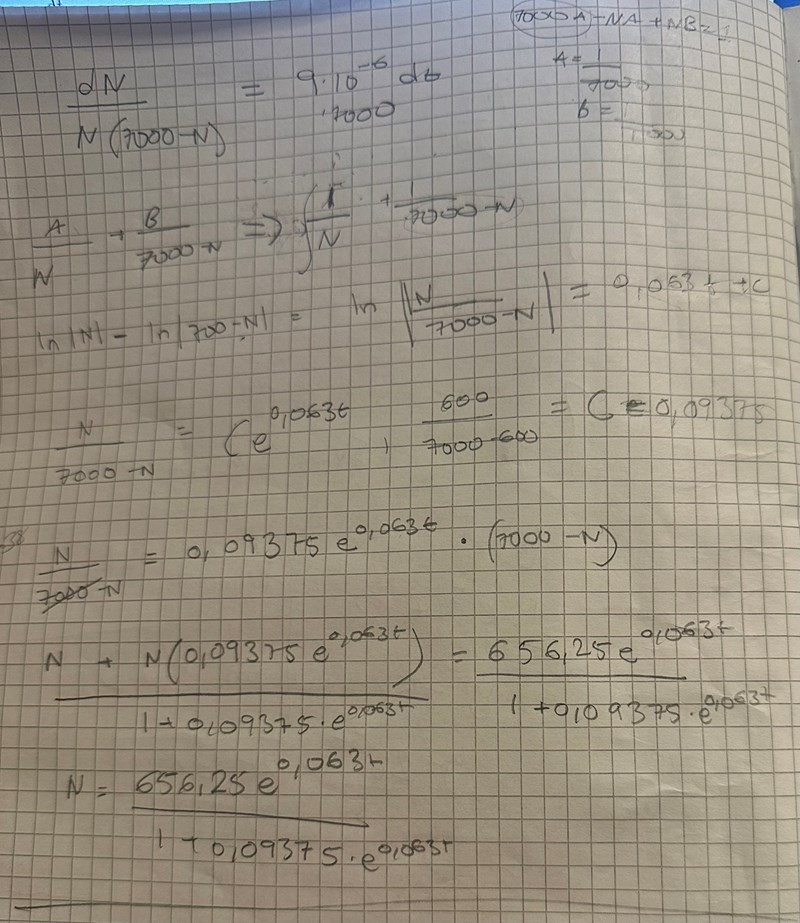 7000A - NA + NB = 1
dN / N(7000-N) = 9·10^-6 dt
·7000
A = 1 / 7000
B = 1 / 7000
A / N + B / 7000-N => ∫ 1 / N + 1 / 7000-N
ln|N| - ln|7000-N| = ln |N / 7000-N| = 0,063t + C
N / 7000-N = Ce^0,063t , 600 / 7000-600 = C = 0,09375
N / 7000-N = 0,09375 e^0,063t · (7000-N)
N + N(0,09375 e^0,063t) / 1+0,09375·e^0,063t = 656,25 e^0,063t / 1+0,09375·e^0,063t
N = 656,25 e^0,063t / 1+0,09375·e^0,063t